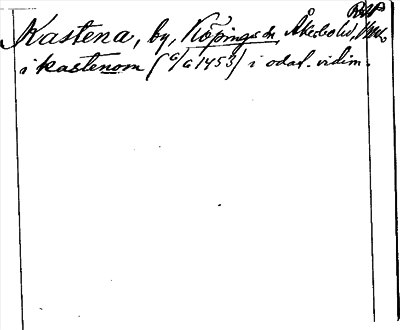 Kastena, by, Köpings sn, Åkerbo hd,
i kastenom (6/6 1453) i odat. vidim.